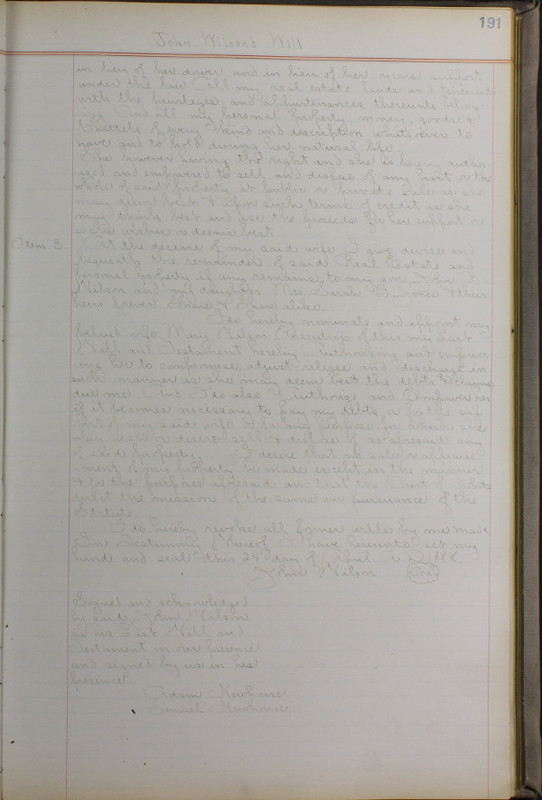 191
John Wilson's Will
in lieu of her dower and in lieu of her years support
under the law all my real estate lands and tenements
with the privileges and appurtenances thereunto belong
ing and all my personal property, money, goods &
Chattels of every kind and description whatsoever to
have and to hold during her natural life
She however having the right and she is hereby author
ized and empowered to sell and dispose of any part or the
whole of said property at public or private sale as she
may deem best & upon such terms of credit as she
may think best and use the proceeds for her support or
as she wishes or deems best
Item 3. At the decease of my said wife I give devise and
bequeath the remainder of said Real Estate and
personal property if any remains to my son John
Wilson and my daughter Mrs. Sarah & their
heirs forever Share & Share alike.
I do hereby nominate and appoint my
beloved wife Mary Wilson Executrix of this my Last
Will and Testament hereby authorizing and empower
ing her to compromise adjust release and discharge in
such manner as she may deem best the debts & claims
due me And I do also Authorize and Empower her
if it becomes necessary to pay my debts or for the sup
port of my said wife or for any purpose for which she
may wish or desire sell & dispose of as aforesaid any
of said property. I desire that no sale or appraise
ment of my property be made except in the manner
& for the purposes aforesaid and that the Court of
the omission of the same in pursuance of the
Statute.
I do hereby revoke all former wills by me made
In Testimony Whereof I have hereunto set my
hand and seal this 24 day of April A. D. 188
John Wilson Seal
Signed and acknowledged
by said John Wilson
as his Last Will and
Testament in our presence
and signed by us in his
presence.
Adam Newhouse
Samuel Newhouse